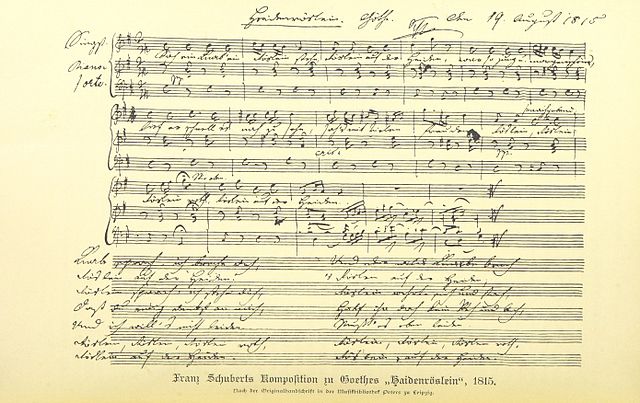 Heidenröslein. Göthe. Den 19. August 1815
Singst.
Piano-
forte.
Sah ein Knab ein Röslein stehn, Röslein auf der Heiden, war so jung u. morgenschön
lief er schnell es nah zu sehn, sah's mit vielen Freuden. Röslein, Röslein,
Röslein roth, Röslein auf der Heiden.
Knab sprach ich breche dich,
Röslein auf der Heiden
Röslein sprach ich steche dich,
Daß du ewig denkst an mich,
Und ich will's nicht leiden.
Röslein, Röslein, Röslein roth,
Röslein auf der Heiden.
Und der wilde Knabe brach
's Röslein auf der Heiden,
Röslein wehrte sich und stach,
Half ihr doch kein Weh und Ach,
Mußt' es eben leiden
Röslein, Röslein, Röslein roth,
Röslein auf der Heiden.
Franz Schuberts Komposition zu Goethes „Haidenröslein“, 1815.
Nach der Originalhandschrift in der Musikbibliothek Peters zu Leipzig.